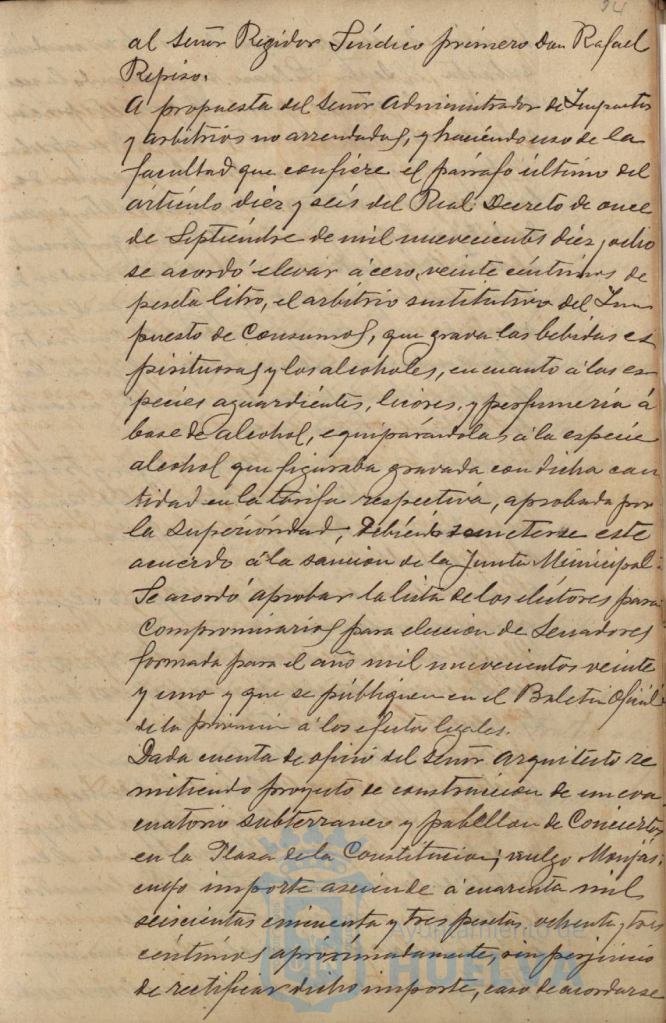 al Señor Regidor Síndico primero Don Rafael
Repiso.
A propuesta del Señor Administrador de Impuestos
y arbitrios no arrendados, y haciendo uso de la
facultad que confiere el párrafo último del
artículo diez y seis del Real Decreto de once
de Septiembre de mil nuevecientos diez y ocho
se acordó elevar á cero, veinte céntimos de
peseta litro, el arbitrio sustitutivo del Im
puesto de Consumos, que grava las bebidas es
pirituosas y los alcoholes, en cuanto á las es
pecies aguardientes, licores, y perfumería á
base de alcohol, equiparándolas á la especie
alcohol que figuraba gravada con dicha can
tidad en la tarifa respectiva, aprobada por
la Superioridad, debiendo someterse este
acuerdo á la sancion de la Junta Municipal.
Se acordó aprobar la lista de los electores para
Compromisarios para eleccion de Senadores
formada para el año mil nuevecientos veinte
y uno y que se publiquen en el Boletin Oficial
de la provincia á los efectos legales.
Dada cuenta de oficio del Señor Arquitecto re
mitiendo proyecto de construccion de un eva
cuatorio subterraneo y pabellon de Conciertos
en la Plaza de la Constitucion, vulgo Monjas,
cuyo importe asciende á cuarenta mil
seiscientas cincuenta y tres pesetas, ochenta y tres
céntimos aproximadamente, sin perjuicio
de rectificar dicho importe, caso de acordarse
Ayuntamiento de
HUELVA